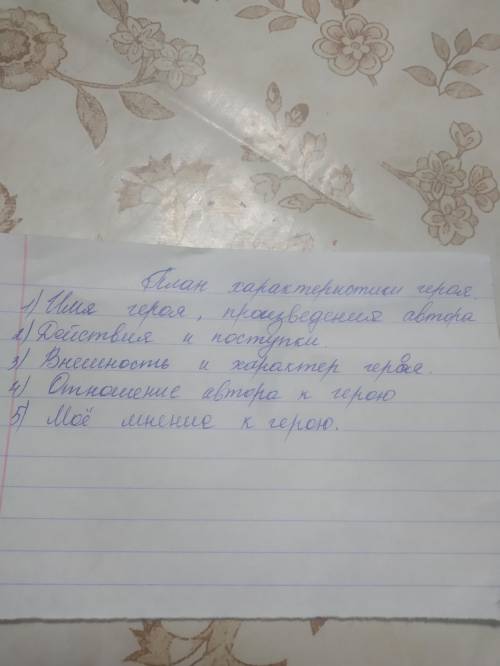 План характеристики героя.
1) Имя героя, произведения автора
2) Действия и поступки.
3) Внешность и характер героя.
4) Отношение автора к герою
5) Моё мнение к герою.